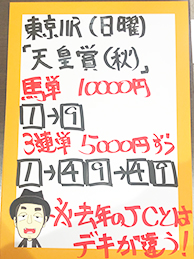 東京11R(日曜)
「天皇賞(秋)」
馬単 10000円
1→9
3連単 5000円ずつ
1→49→49
※去年のJCとは
デキが違う!